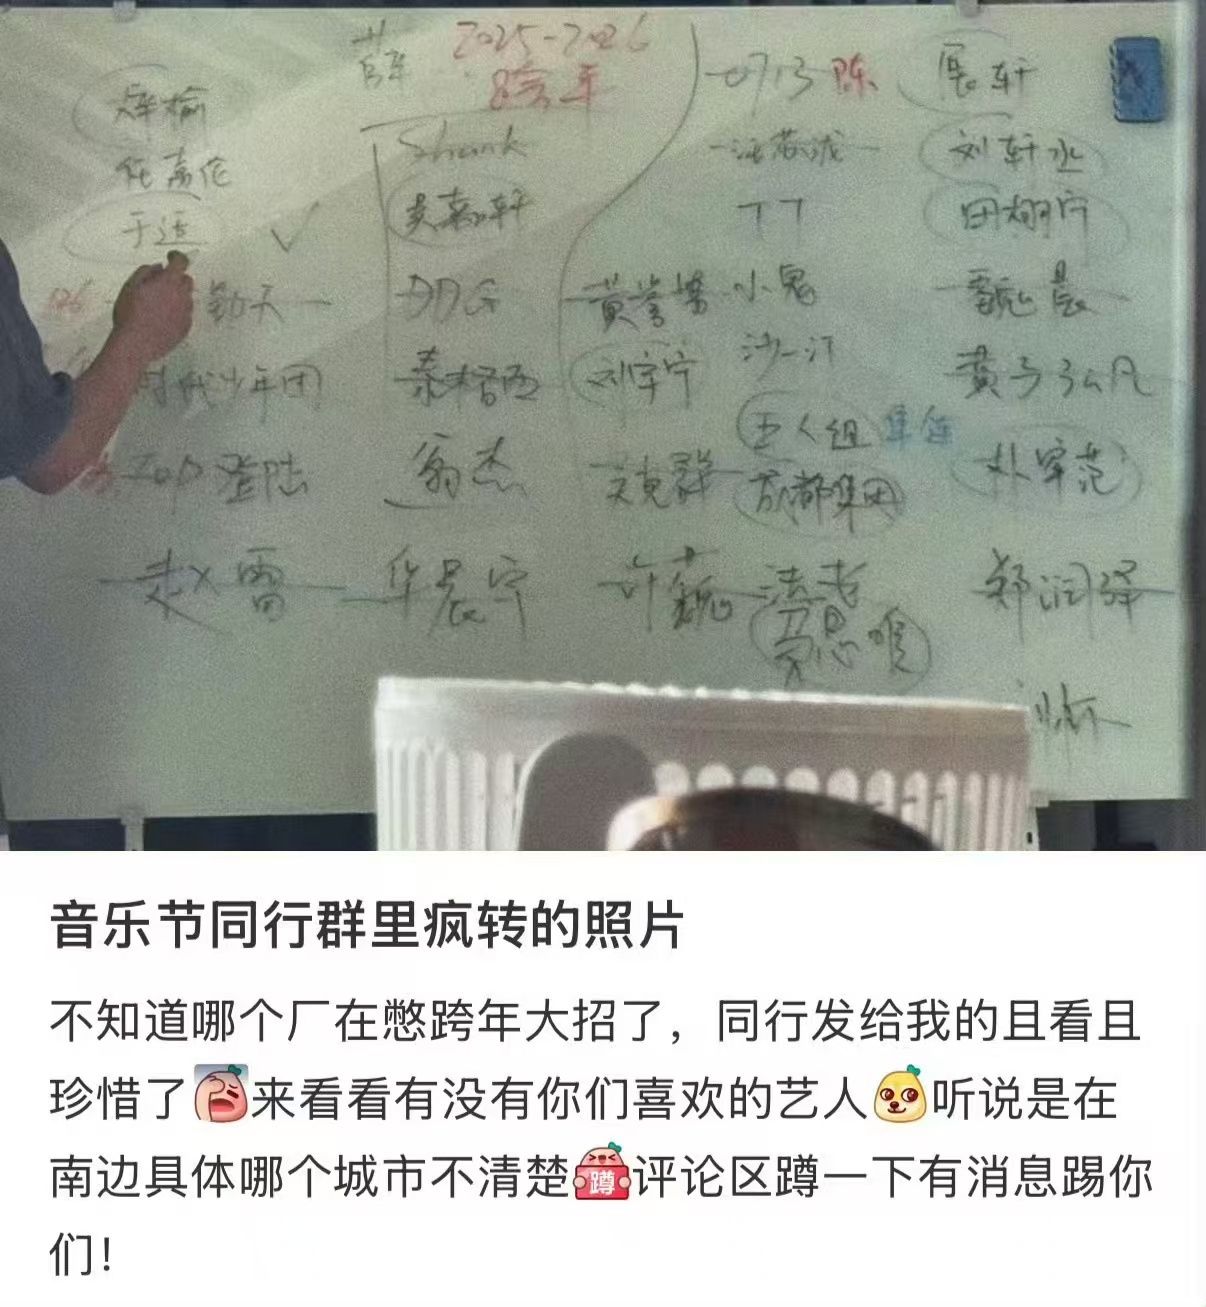 2025-2026
跨年
梓榆
任嘉伦
于适
勤天
时代少年团
top登陆
赵雷
Shunk
黄嘉轩
DDG
秦格西
翁杰
华晨宇
黄誉博
刘宇宁
艾克群
许巍
0713 陈
汪苏泷
TT
小鬼
沙一汀
五人组
成都集团
法老
展轩
刘轩丞
田栩宁
魏晨
黄子弘凡
朴宰范
郑润泽
音乐节同行群里疯转的照片
不知道哪个厂在憋跨年大招了，同行发给我的且看且
珍惜了来看看有没有你们喜欢的艺人听说是在
南边具体哪个城市不清楚蹲评论区蹲一下有消息踢你
们！